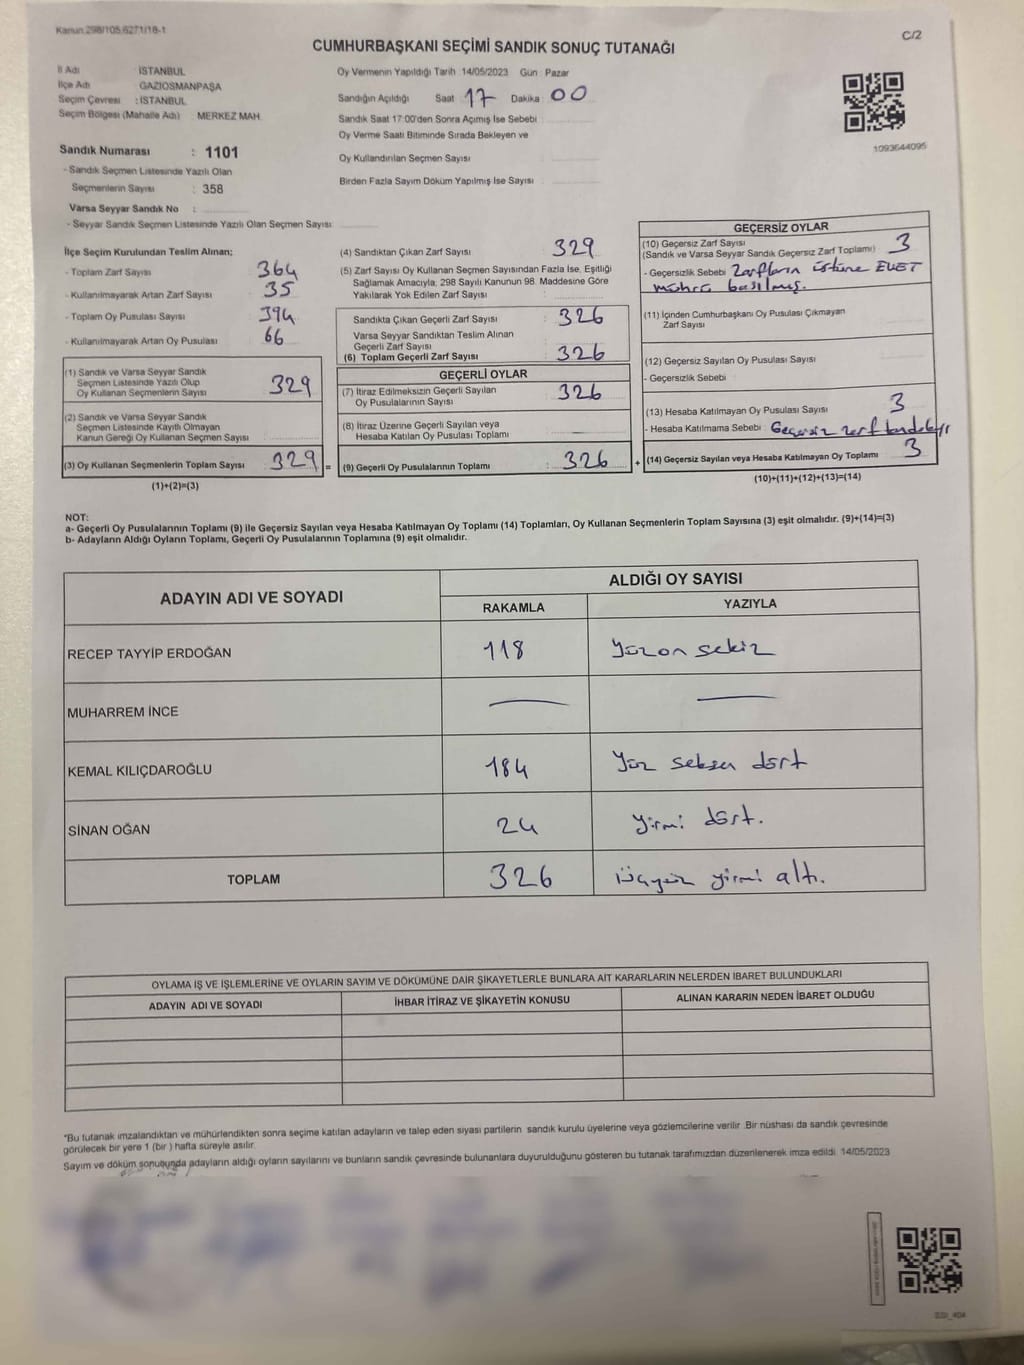 Kanun:298/105,6271/18-1
C/2
CUMHURBAŞKANI SEÇİMİ SANDIK SONUÇ TUTANAĞI
İl Adı : İSTANBUL
İlçe Adı : GAZİOSMANPAŞA
Seçim Çevresi : İSTANBUL
Seçim Bölgesi (Mahalle Adı) : MERKEZ MAH.
Oy Vermenin Yapıldığı Tarih :14/05/2023 Gün : Pazar
Sandığın Açıldığı Saat 17 Dakika 00
Sandık Saat 17:00'den Sonra Açımış İse Sebebi :
Oy Verme Saati Bitiminde Sırada Bekleyen ve
Oy Kullandırılan Seçmen Sayısı
Birden Fazla Sayım Döküm Yapılmış İse Sayısı :
1093644095
Sandık Numarası : 1101
- Sandık Seçmen Listesinde Yazılı Olan
Seçmenlerin Sayısı : 358
Varsa Seyyar Sandık No :
- Seyyar Sandık Seçmen Listesinde Yazılı Olan Seçmen Sayısı:
İlçe Seçim Kurulundan Teslim Alınan;
- Toplam Zarf Sayısı 364
- Kullanılmayarak Artan Zarf Sayısı 35
- Toplam Oy Pusulası Sayısı 394
- Kullanılmayarak Artan Oy Pusulası 66
(1) Sandık ve Varsa Seyyar Sandık
Seçmen Listesinde Yazılı Olup
Oy Kullanan Seçmenlerin Sayısı 329
(2) Sandık ve Varsa Seyyar Sandık
Seçmen Listesinde Kayıtlı Olmayan
Kanun Gereği Oy Kullanan Seçmen Sayısı
(3) Oy Kullanan Seçmenlerin Toplam Sayısı : 329 =
(1)+(2)=(3)
(4) Sandıktan Çıkan Zarf Sayısı 329
(5) Zarf Sayısı Oy Kullanan Seçmen Sayısından Fazla İse, Eşitliği
Sağlamak Amacıyla; 298 Sayılı Kanunun 98. Maddesine Göre
Yakılarak Yok Edilen Zarf Sayısı :
Sandıkta Çıkan Geçerli Zarf Sayısı : 326
Varsa Seyyar Sandıktan Teslim Alınan
Geçerli Zarf Sayısı
(6) Toplam Geçerli Zarf Sayısı : 326
GEÇERLİ OYLAR
(7) İtiraz Edilmeksizin Geçerli Sayılan
Oy Pusulalarının Sayısı : 326
(8) İtiraz Üzerine Geçerli Sayılan veya
Hesaba Katılan Oy Pusulası Toplamı :
(9) Geçerli Oy Pusulalarının Toplamı : 326 +
GEÇERSİZ OYLAR
(10) Geçersiz Zarf Sayısı
(Sandık ve Varsa Seyyar Sandık Geçersiz Zarf Toplamı) 3
- Geçersizlik Sebebi : Zarfların üstüne EVET
mührü basılmış.
(11) İçinden Cumhurbaşkanı Oy Pusulası Çıkmayan
Zarf Sayısı
(12) Geçersiz Sayılan Oy Pusulası Sayısı
- Geçersizlik Sebebi :
(13) Hesaba Katılmayan Oy Pusulası Sayısı 3
- Hesaba Katılmama Sebebi : Geçersiz zarf
(14) Geçersiz Sayılan veya Hesaba Katılmayan Oy Toplamı : 3
(10)+(11)+(12)+(13)=(14)
NOT:
a- Geçerli Oy Pusulalarının Toplamı (9) ile Geçersiz Sayılan veya Hesaba Katılmayan Oy Toplamı (14) Toplamları, Oy Kullanan Seçmenlerin Toplam Sayısına (3) eşit olmalıdır. (9)+(14)=(3)
b- Adayların Aldığı Oyların Toplamı, Geçerli Oy Pusulalarının Toplamına (9) eşit olmalıdır.
ADAYIN ADI VE SOYADI
ALDIĞI OY SAYISI
RAKAMLA YAZIYLA
RECEP TAYYİP ERDOĞAN 118 Yüz on sekiz
MUHARREM İNCE — —
KEMAL KILIÇDAROĞLU 184 Yüz seksen dört
SİNAN OĞAN 24 Yirmi dört.
TOPLAM 326 Üçyüz yirmi altı.
OYLAMA İŞ VE İŞLEMLERİNE VE OYLARIN SAYIM VE DÖKÜMÜNE DAİR ŞİKAYETLERLE BUNLARA AİT KARARLARIN NELERDEN İBARET BULUNDUKLARI
ADAYIN ADI VE SOYADI İHBAR İTİRAZ VE ŞİKAYETİN KONUSU ALINAN KARARIN NEDEN İBARET OLDUĞU
*Bu tutanak imzalandıktan ve mühürlendikten sonra seçime katılan adayların ve talep eden siyasi partilerin sandık kurulu üyelerine veya gözlemcilerine verilir. Bir nüshası da sandık çevresinde
görülecek bir yere 1 (bir ) hafta süreyle asılır.
Sayım ve döküm sonucunda adayların aldığı oyların sayılarını ve bunların sandık çevresinde bulunanlara duyurulduğunu gösteren bu tutanak tarafımızdan düzenlenerek imza edildi. 14/05/2023